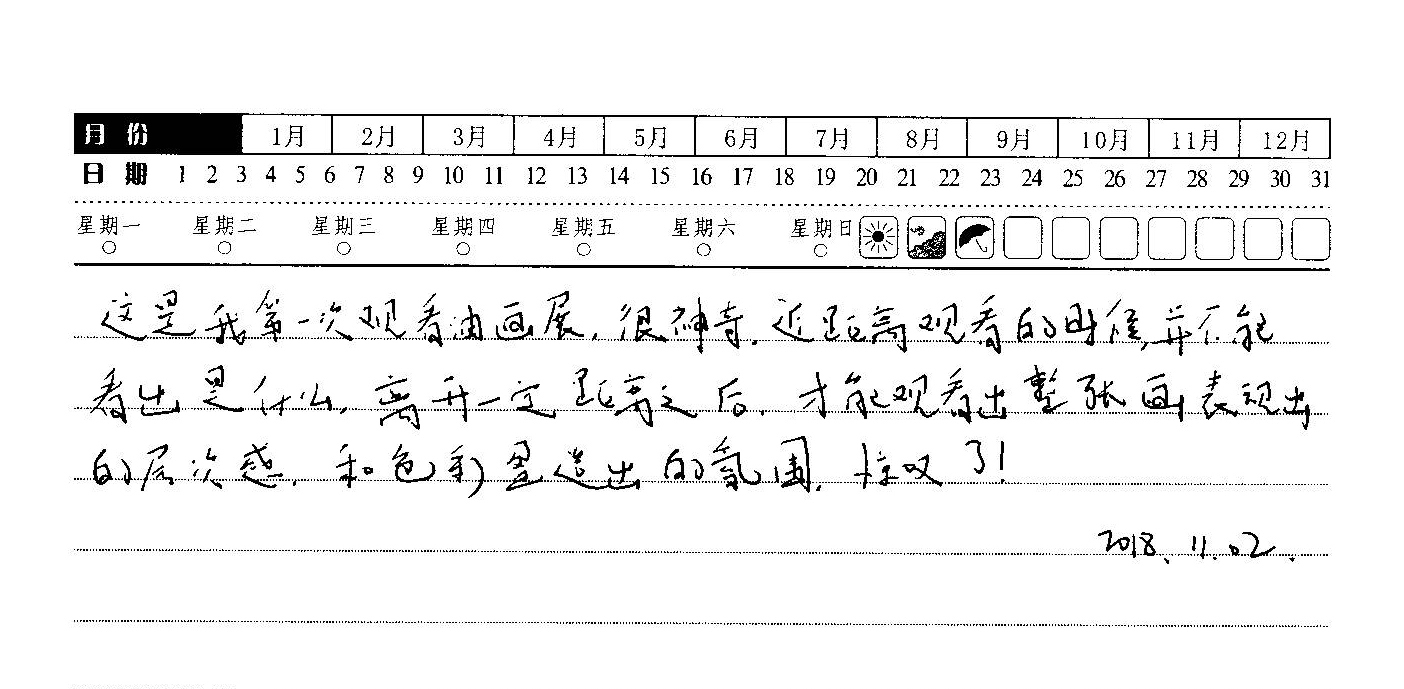 月份 1月 2月 3月 4月 5月 6月 7月 8月 9月 10月 11月 12月
日期 1 2 3 4 5 6 7 8 9 10 11 12 13 14 15 16 17 18 19 20 21 22 23 24 25 26 27 28 29 30 31
星期一 星期二 星期三 星期四 星期五 星期六 星期日
这是我第一次观看油画展,很神奇.近距离观看的时候,并不能
看出是什么,离开一定距离之后,才能观看出整张画表现出
的层次感,和色彩营造出的氛围,惊叹了!
2018.11.02.